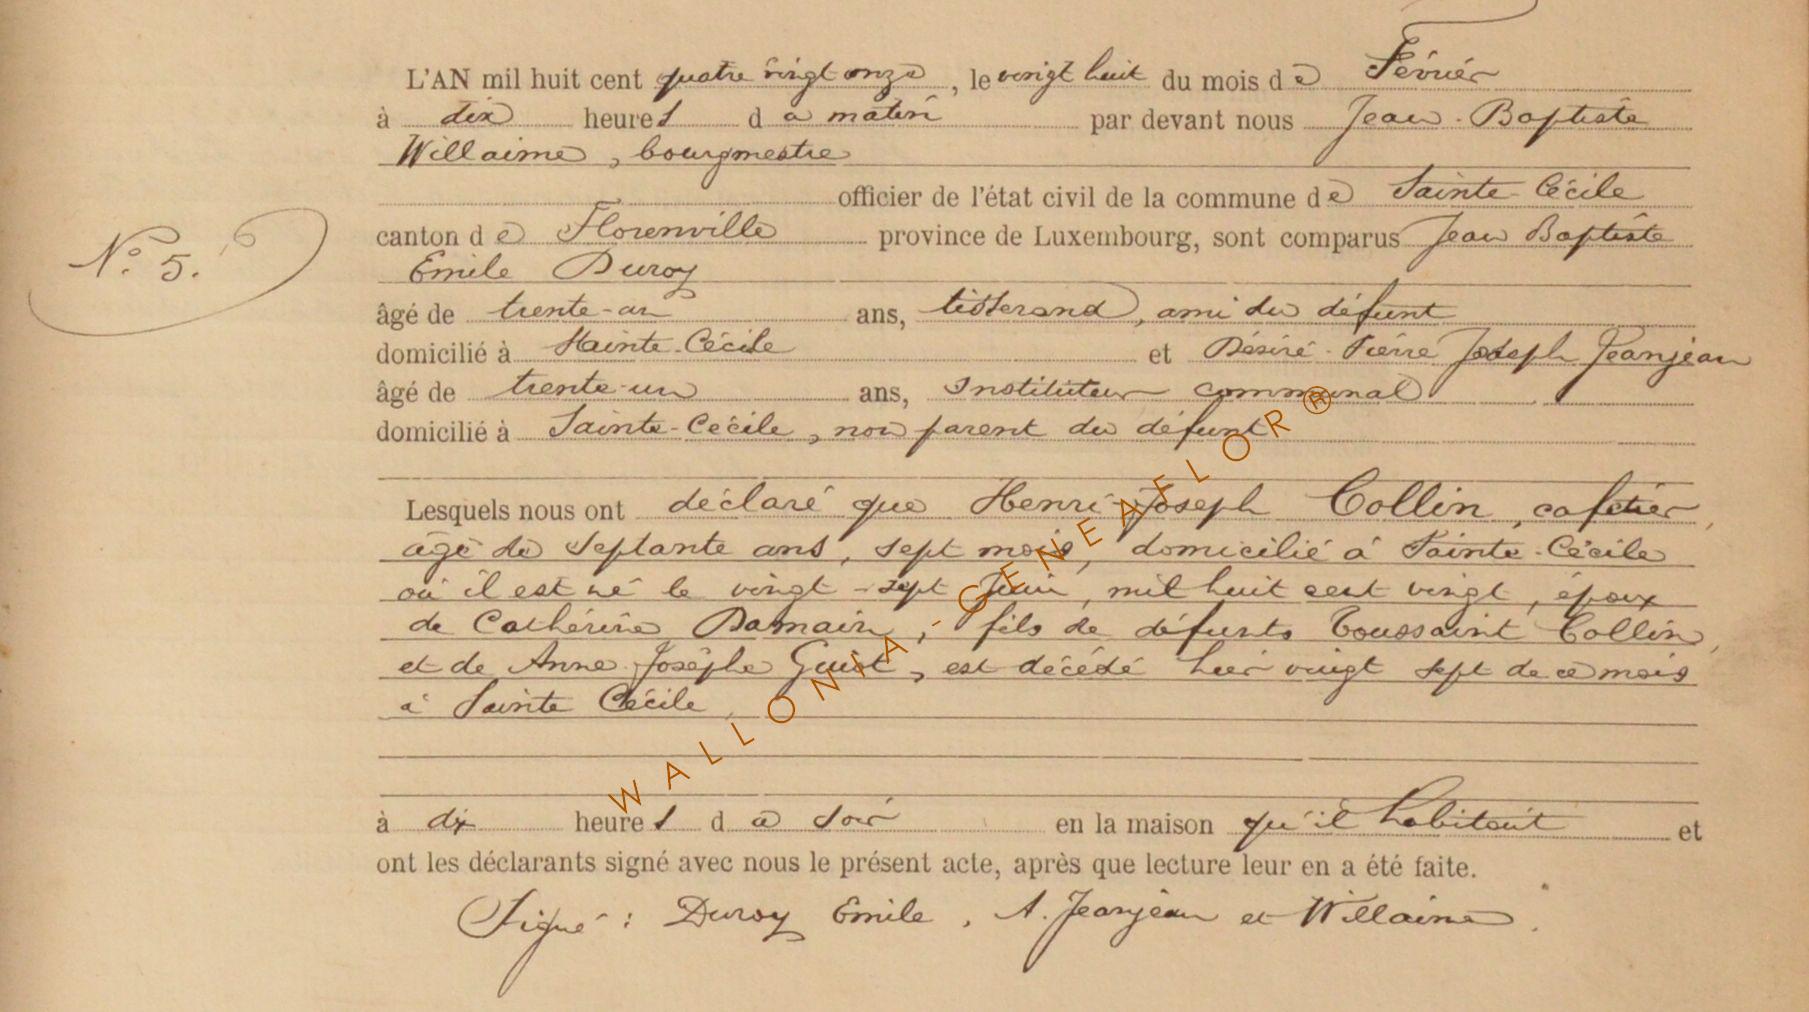 L'AN mil huit cent quatre vingt onze, le vingt huit du mois de Février
à dix heures du matin par devant nous Jean-Baptiste
Willaime, bourgmestre
officier de l'état civil de la commune de Sainte-Cécile
canton de Florenville province de Luxembourg, sont comparus Jean Baptiste
N° 5.
Emile Duroy
âgé de trente-un ans, tisserand, ami du défunt
domicilié à Sainte-Cécile et Désiré-Pierre Joseph Jeanjean
âgé de trente-un ans, Instituteur communal
domicilié à Sainte-Cécile, non parent du défunt
Lesquels nous ont déclaré que Henri-Joseph Collin, cafetier,
âgé de septante ans, sept mois, domicilié à Sainte-Cécile
où il est né le vingt-sept Juin, mil huit cent vingt, époux
de Cathérine Damain, fils de défunts Toussaint Collin,
et de Anne Josèphe, est décédé hier vingt sept de ce mois
à Sainte Cécile,
à dix heures du soir en la maison qu'il habitait et
ont les déclarants signé avec nous le présent acte, après que lecture leur en a été faite.
Signé : Duroy Emile, A. Jeanjean et Willaime.
WALLONIA - GENEAFLOR®